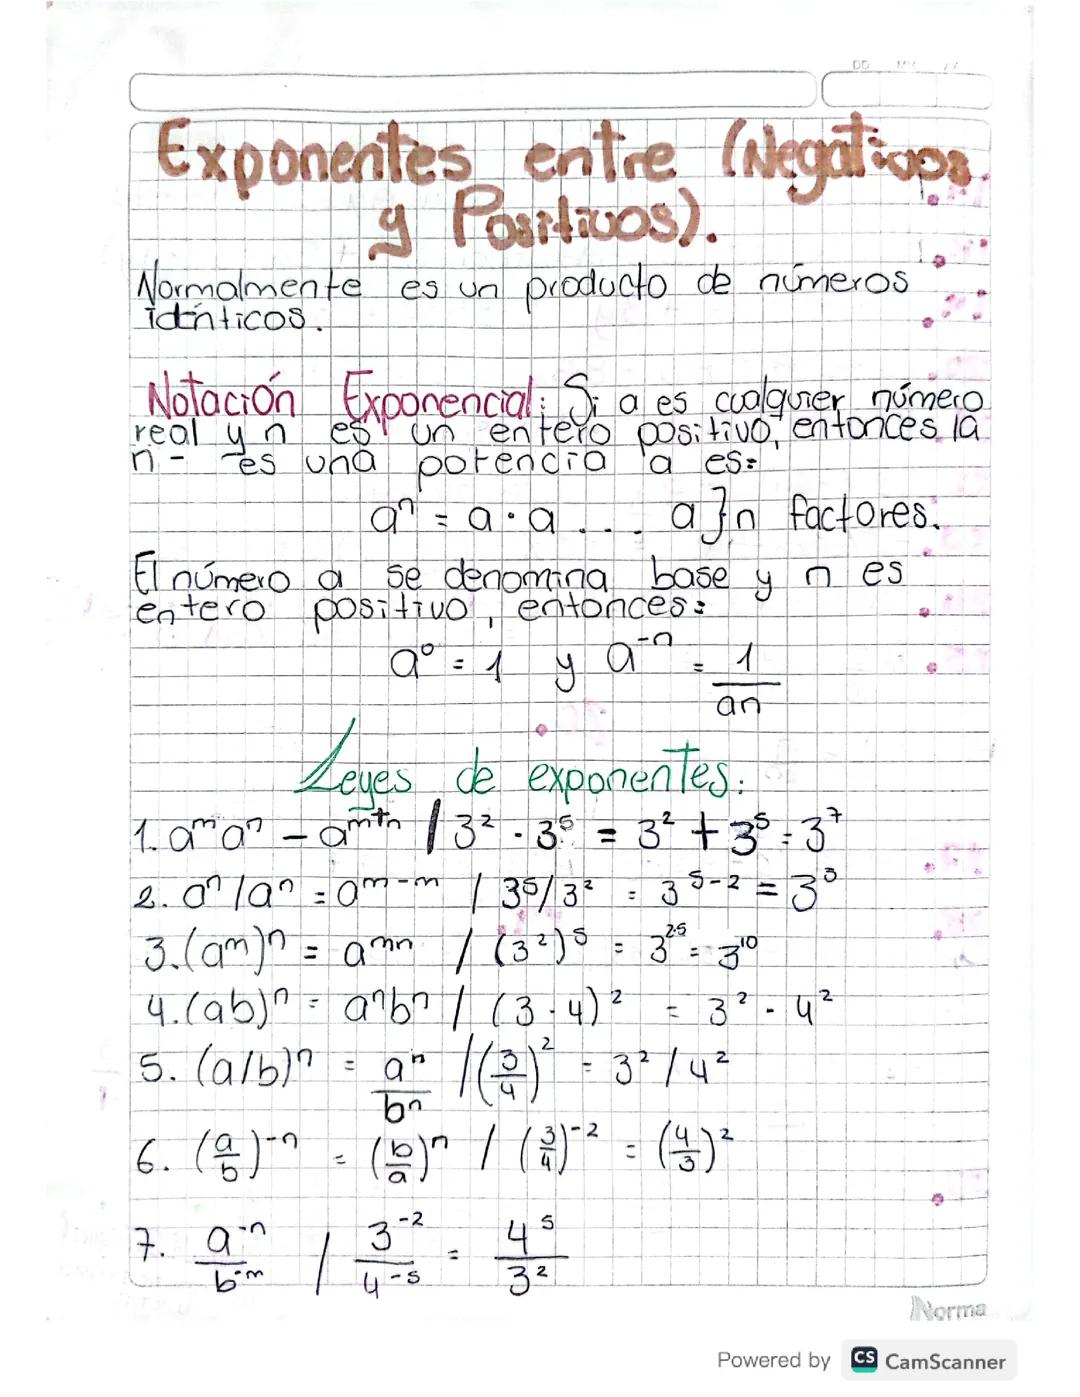 DD MM YY
Exponentes entre (Negativos
y Positivos).
Normalmente es un producto de números
idénticos.
Notación Exponencial: Si a es cualquier número
real y n es un entero positivo, entonces la
n - es una potencia a es:
aⁿ = a · a . . . . a } n factores.
El número a se denomina base y n es
entero positivo, entonces:
a⁰ = 1 y a⁻ⁿ = 1/an
Leyes de exponentes:
1. aᵐaⁿ – aᵐ⁺ⁿ / 3² · 3⁵ = 3² + 3⁵ = 3⁷
2. aⁿ/aⁿ = aᵐ⁻ᵐ / 3⁵/3² = 3⁵⁻² = 3³
3. (aᵐ)ⁿ = aᵐⁿ / (3²)⁵ = 3²·⁵ = 3¹⁰
4. (ab)ⁿ = aⁿbⁿ / (3·4)² = 3² · 4²
5. (a/b)ⁿ = aⁿ/bⁿ / (3/4)² = 3²/4²
6. (a/b)⁻ⁿ = (b/a)ⁿ / (3/4)⁻² = (4/3)²
7. a⁻ⁿ/b⁻ᵐ / 3⁻²/4⁻⁵ = 4⁵/3²
Norma
Powered by CS CamScanner